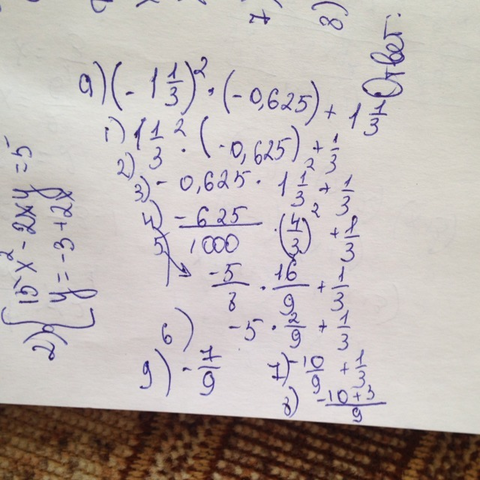 9) (-1 1/3)² · (-0,625) + 1 1/3
1) 1 1/3² · (-0,625) + 1/3
2)
3) - 0,625 · 1 1/3² + 1/3
4) -625/1000 · (4/3)² + 1/3
5) -5/8 · 16/9 + 1/3
6) -5 · 2/9 + 1/3
7) -10/9 + 1/3
8) -10+3/9
9) -7/9
Ответ:
2) { 15x² - 2xy = 5
y = -3 + 2x
7)
8)